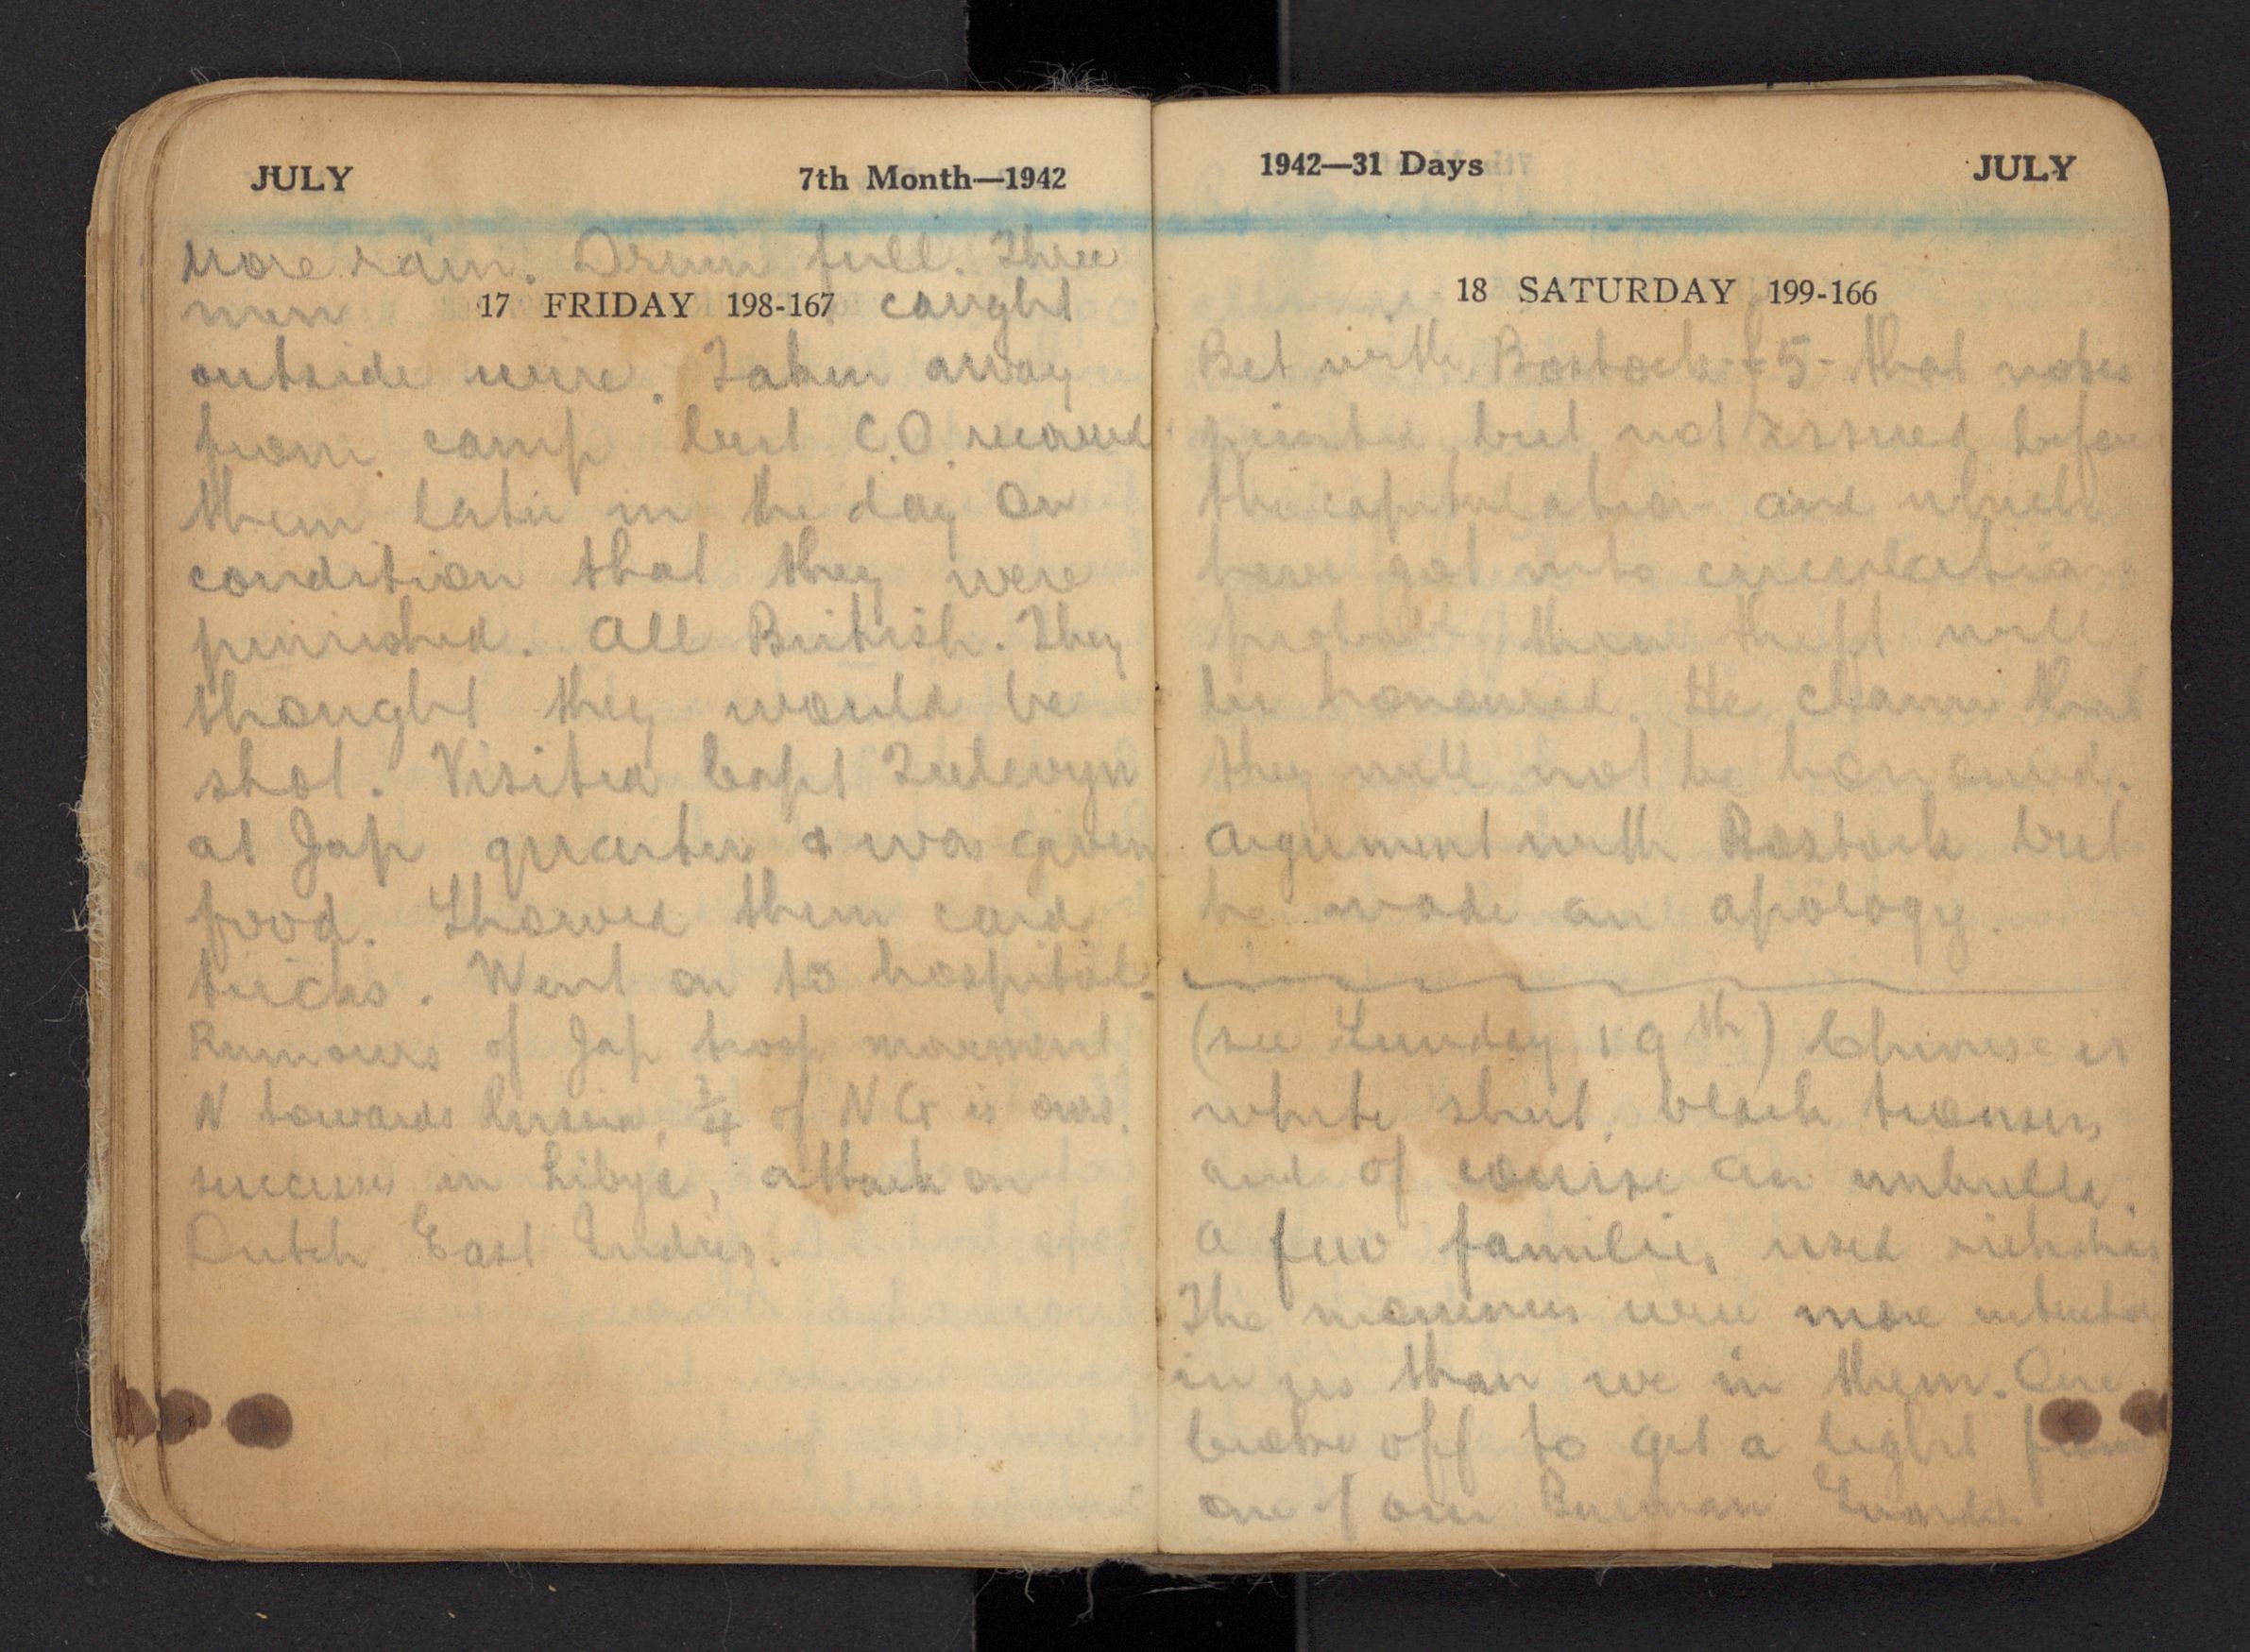 JULY 7th Month—1942
More rain. Drum full. Three
men caught
17 FRIDAY 198-167
outside wire. Taken away
from camp but C.O. rescued
them later in the day on
condition that they were
punished. All British. They
thought they would be
shot. Visited Capt
at Jap quarters & was given
food. Showed them card
tricks. Went on to hospital.
Rumours of Jap troop movement
N towards Russia, 3/4 of N G is ours,
successes in Libya, attack on
Dutch East Indies.
1942—31 Days JULY
18 SATURDAY 199-166
Bet with Bostock - £5 - that notes
printed but not issued before
the capitulation and which
have got into circulation
probably through theft will
be honoured. He claims that
they will not be honoured.
Argument with Bostock but
he made an apology.
(see Sunday 19th) Chinese in
white shirt, black trousers
and of course an umbrella.
A few families used rickshas
The were more interested
in us than we in them. One
broke off to get a light from
one of our Burman Guards.